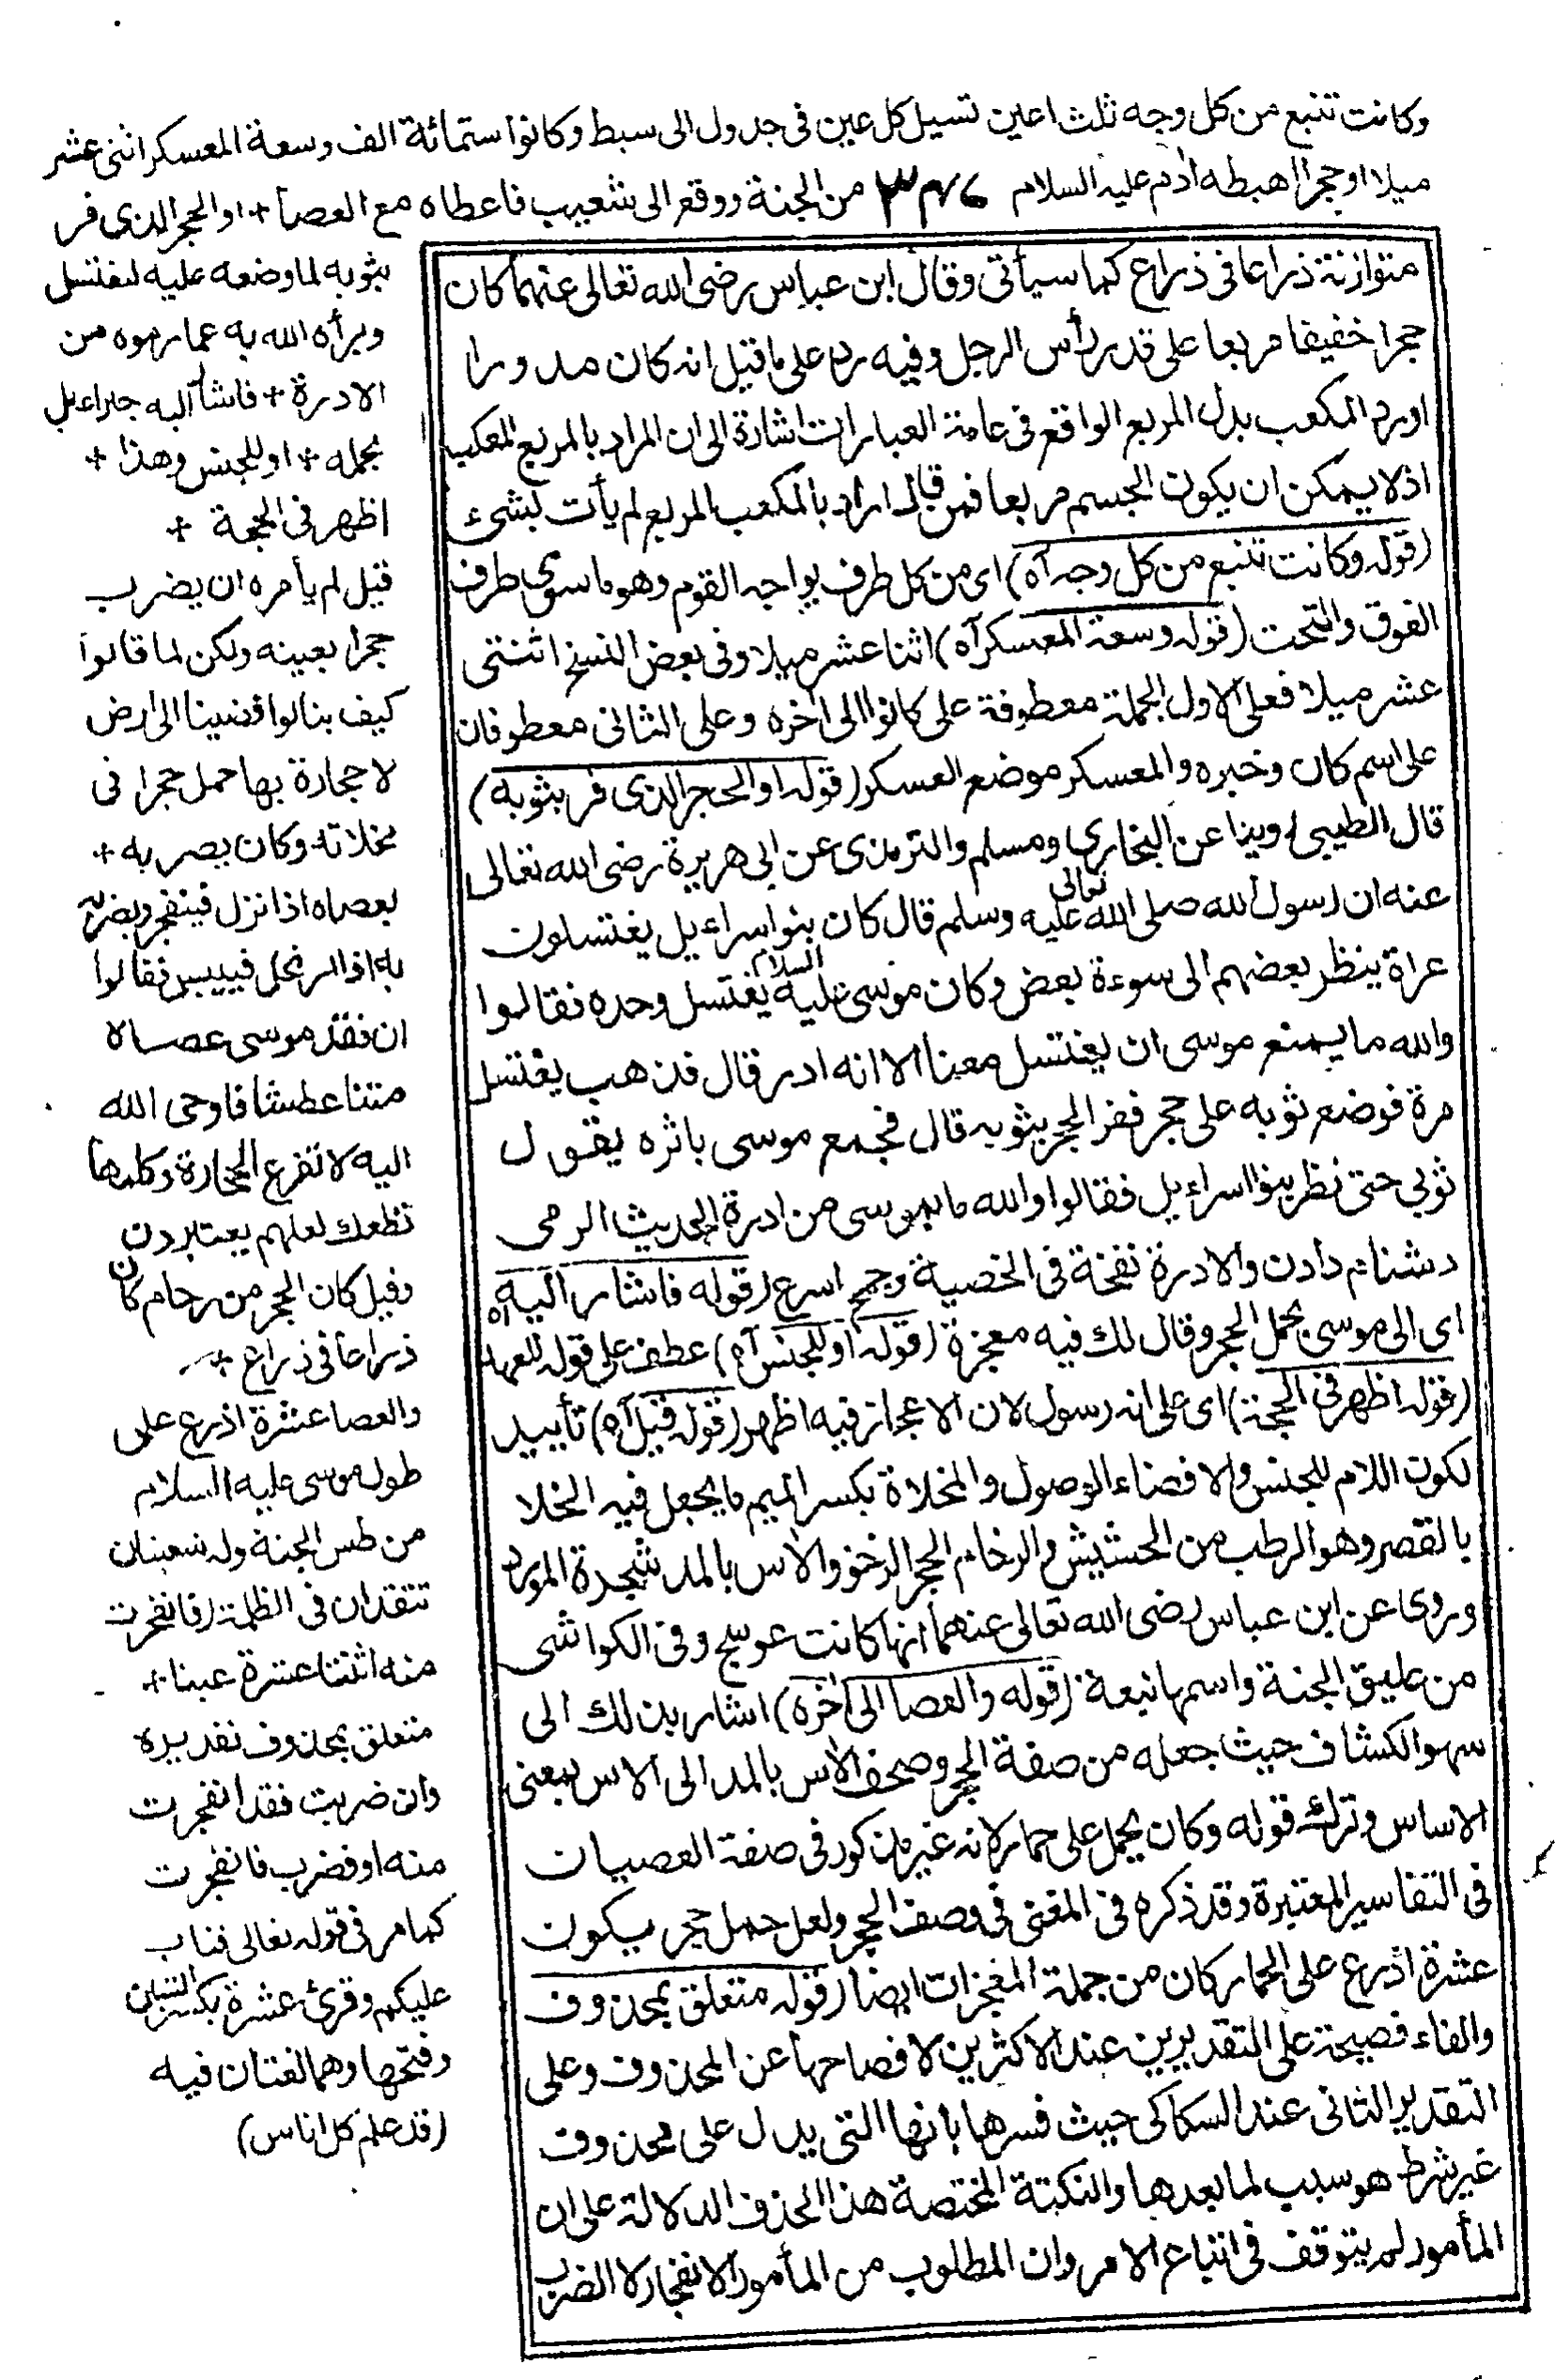 وكانت تنبع من كل وجه ثلث اعين تسيل كل عين فى جدول الى سبط وكانوا ستمائة الف وسعة المعسكر اثنى عشر
ميلا او حجرا اهبطه ادم عليه السلام ٣٤٦ من الجنة ووقع الى شعيب فاعطاه مع العصا + او الحجر الذى فر
بثوبه لما وضعه عليه ليغتسل
وبرأه الله به عما رموه من
الادرة + فاشار اليه جبراءيل
بحمله + او للجنس وهذا +
اظهر فى الحجة +
قيل لم يأمره ان يضرب
حجرا بعينه ولكن لما قالوا
كيف بنا لو افضينا الى ارض
لا حجارة بها حمل حجرا فى
مخلاته وكان يضربه +
بعصاه اذا نزل فينفجر ويضربه
به اذا ارتحل فييبس فقالوا
ان فقد موسى عصاه
متنا عطشا فاوحى الله
اليه لا تقرع الحجارة وكلمها
تطعك لعلهم يعتبرون
وقيل كان الحجر من رخام كان
ذراعا فى ذراع +
والعصا عشرة اذرع على
طول موسى عليه السلام
من اس الجنة وله شعبتان
تتقدان فى الظلمة (فانفجرت
منه اثنتا عشرة عينا) +
متعلق بمحذوف تقديره
فان ضربت فقد انفجرت
منه او فضرب فانفجرت
كما مر فى قوله تعالى فتاب
عليكم وقرئ عشرة بكسر الشين
وفتحها وهما لغتان فيه
(قد علم كل اناس)
متوازنة ذراعا فى ذراع كما سيأتى وقال ابن عباس رضى الله تعالى عنهما كان
حجرا خفيفا مربعا على قدر رأس الرجل وفيه رد على ما قيل انه كان مدورا
اورد المكعب بدل المربع الواقع فى عامة العبارات اشارة الى ان المراد بالمربع المكعب
اذ لا يمكن ان يكون الجسم مربعا فمن قال اراد بالمكعب المربع لم يأت بشىء
(قوله وكانت تنبع من كل وجه آه) اى من كل طرف يواجه القوم وهو ما سوى طرف
الفوق والتحت (قوله وسعة المعسكر آه) اثنا عشر ميلا وفى بعض النسخ اثنتى
عشر ميلا فعلى الاول الجملة معطوفة على كانوا الى اخره وعلى الثانى معطوفان
على اسم كان وخبره والمعسكر موضع العسكر (قوله او الحجر الذى فر بثوبه)
قال الطيبى روينا عن البخارى ومسلم والترمذى عن ابى هريرة رضى الله تعالى
عنه ان رسول الله صلى الله تعالى عليه وسلم قال كان بنو اسراءيل يغتسلون
عراة ينظر بعضهم الى سوءة بعض وكان موسى عليه السلام يغتسل وحده فقالوا
والله ما يمنع موسى ان يغتسل معنا الا انه ادر قال فذهب يغتسل
مرة فوضع ثوبه على حجر ففر الحجر بثوبه قال فجمع موسى باثره يقول
ثوبى حتى نظر بنو اسراءيل فقالوا والله ما بموسى من ادرة الحديث الرمى
دشنام دادن والادرة نفخة فى الخصية وجمح اسرع (قوله فاشار اليه آه
اى الى موسى بحمل الحجر وقال لك فيه معجزة (قوله او للجنس آه) عطف على قوله للعهد
(قوله اظهر فى الحجة) اى على انه رسول لان الاعجاز فيه اظهر (قوله قيل آه) تأييد
لكون اللام للجنس والافضاء الوصول والمخلاة بكسر الميم ما يجعل فيه الخلا
بالقصر وهو الرطب من الحشيش والرخام الحجر الرخو والاس بالمد شجرة المورد
وروى عن ابن عباس رضى الله تعالى عنهما انها كانت عوسج وفى الكواشى
من عليق الجنة واسمها نبعة (قوله والعصا الى اخره) اشار بذلك الى
سهو الكشاف حيث جعله من صفة الحجر وصحف الاس بالمد الى الاس بمعنى
الاساس وترك قوله وكان يحمل على حمار لانه غير مذكور فى صفة العصيان
فى التفاسير المعتبرة وقد ذكره فى المغنى فى وصف الحجر ولعل حمل حجر يكون
عشرة اذرع على الحمار كان من جملة المعجزات ايضا (قوله متعلق بمحذوف
والفاء فصيحة على التقديرين عند الاكثرين لافصاحها عن المحذوف وعلى
التقدير الثانى عند السكاكى حيث فسرها بانها التى يدل على محذوف
غير شرط هو سبب لما بعدها والنكتة المختصة هذا الحذف الدلالة على ان
المأمور لم يتوقف فى اتباع الامر وان المطلوب من المأمور الانفجار لا الضرب